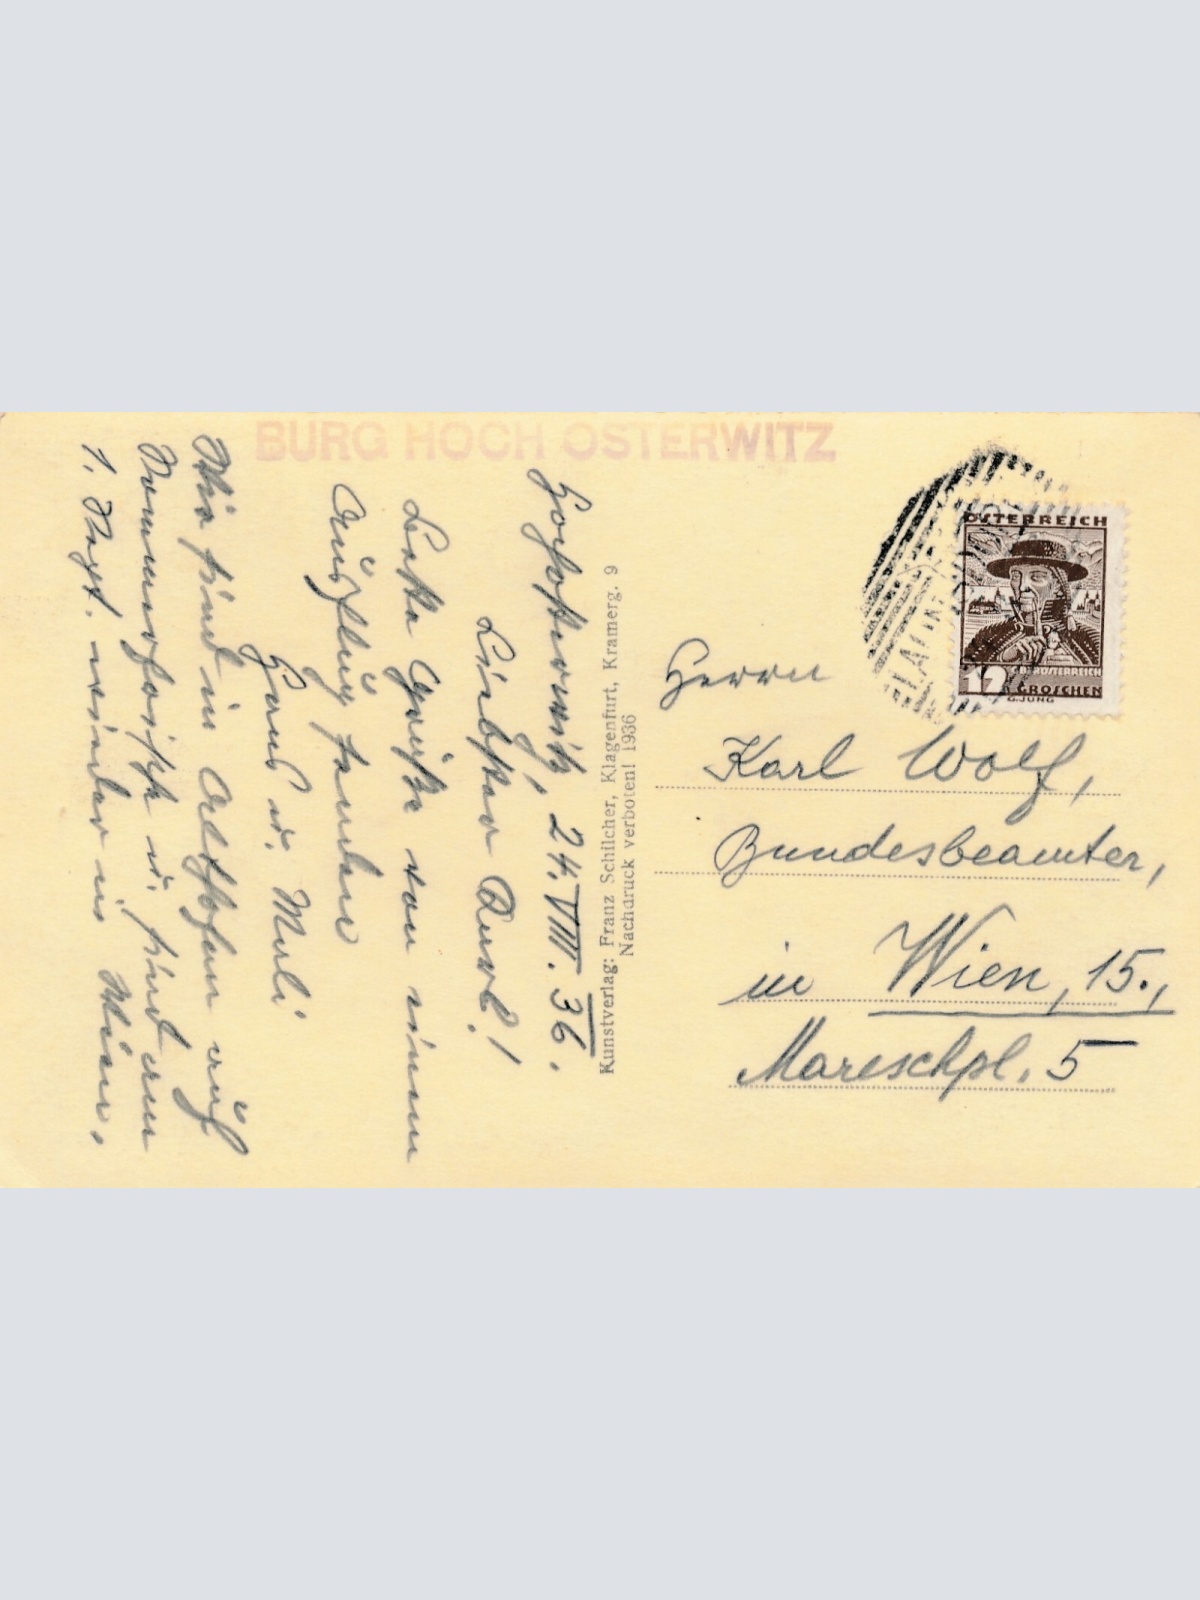 BURG HOCH OSTERWITZ
Hochosterwitz, 24. VIII. 36.
Liebster Karl!
Beste Grüße von einem
Ausflug senden
Hans u. Meli
Wir sind in Althofen auf
Sommerfrische u. sind am
1. Sept. wieder in Wien.
Kunstverlag: Franz Schilcher, Klagenfurt, Kramerg. 9
Nachdruck verboten! 1936
ÖSTERREICH
OBERÖSTERREICH
12 GROSCHEN
G.JUNG
Herrn
Karl Wolf,
Bundesbeamter,
in Wien, 15.,
Mareschpl. 5